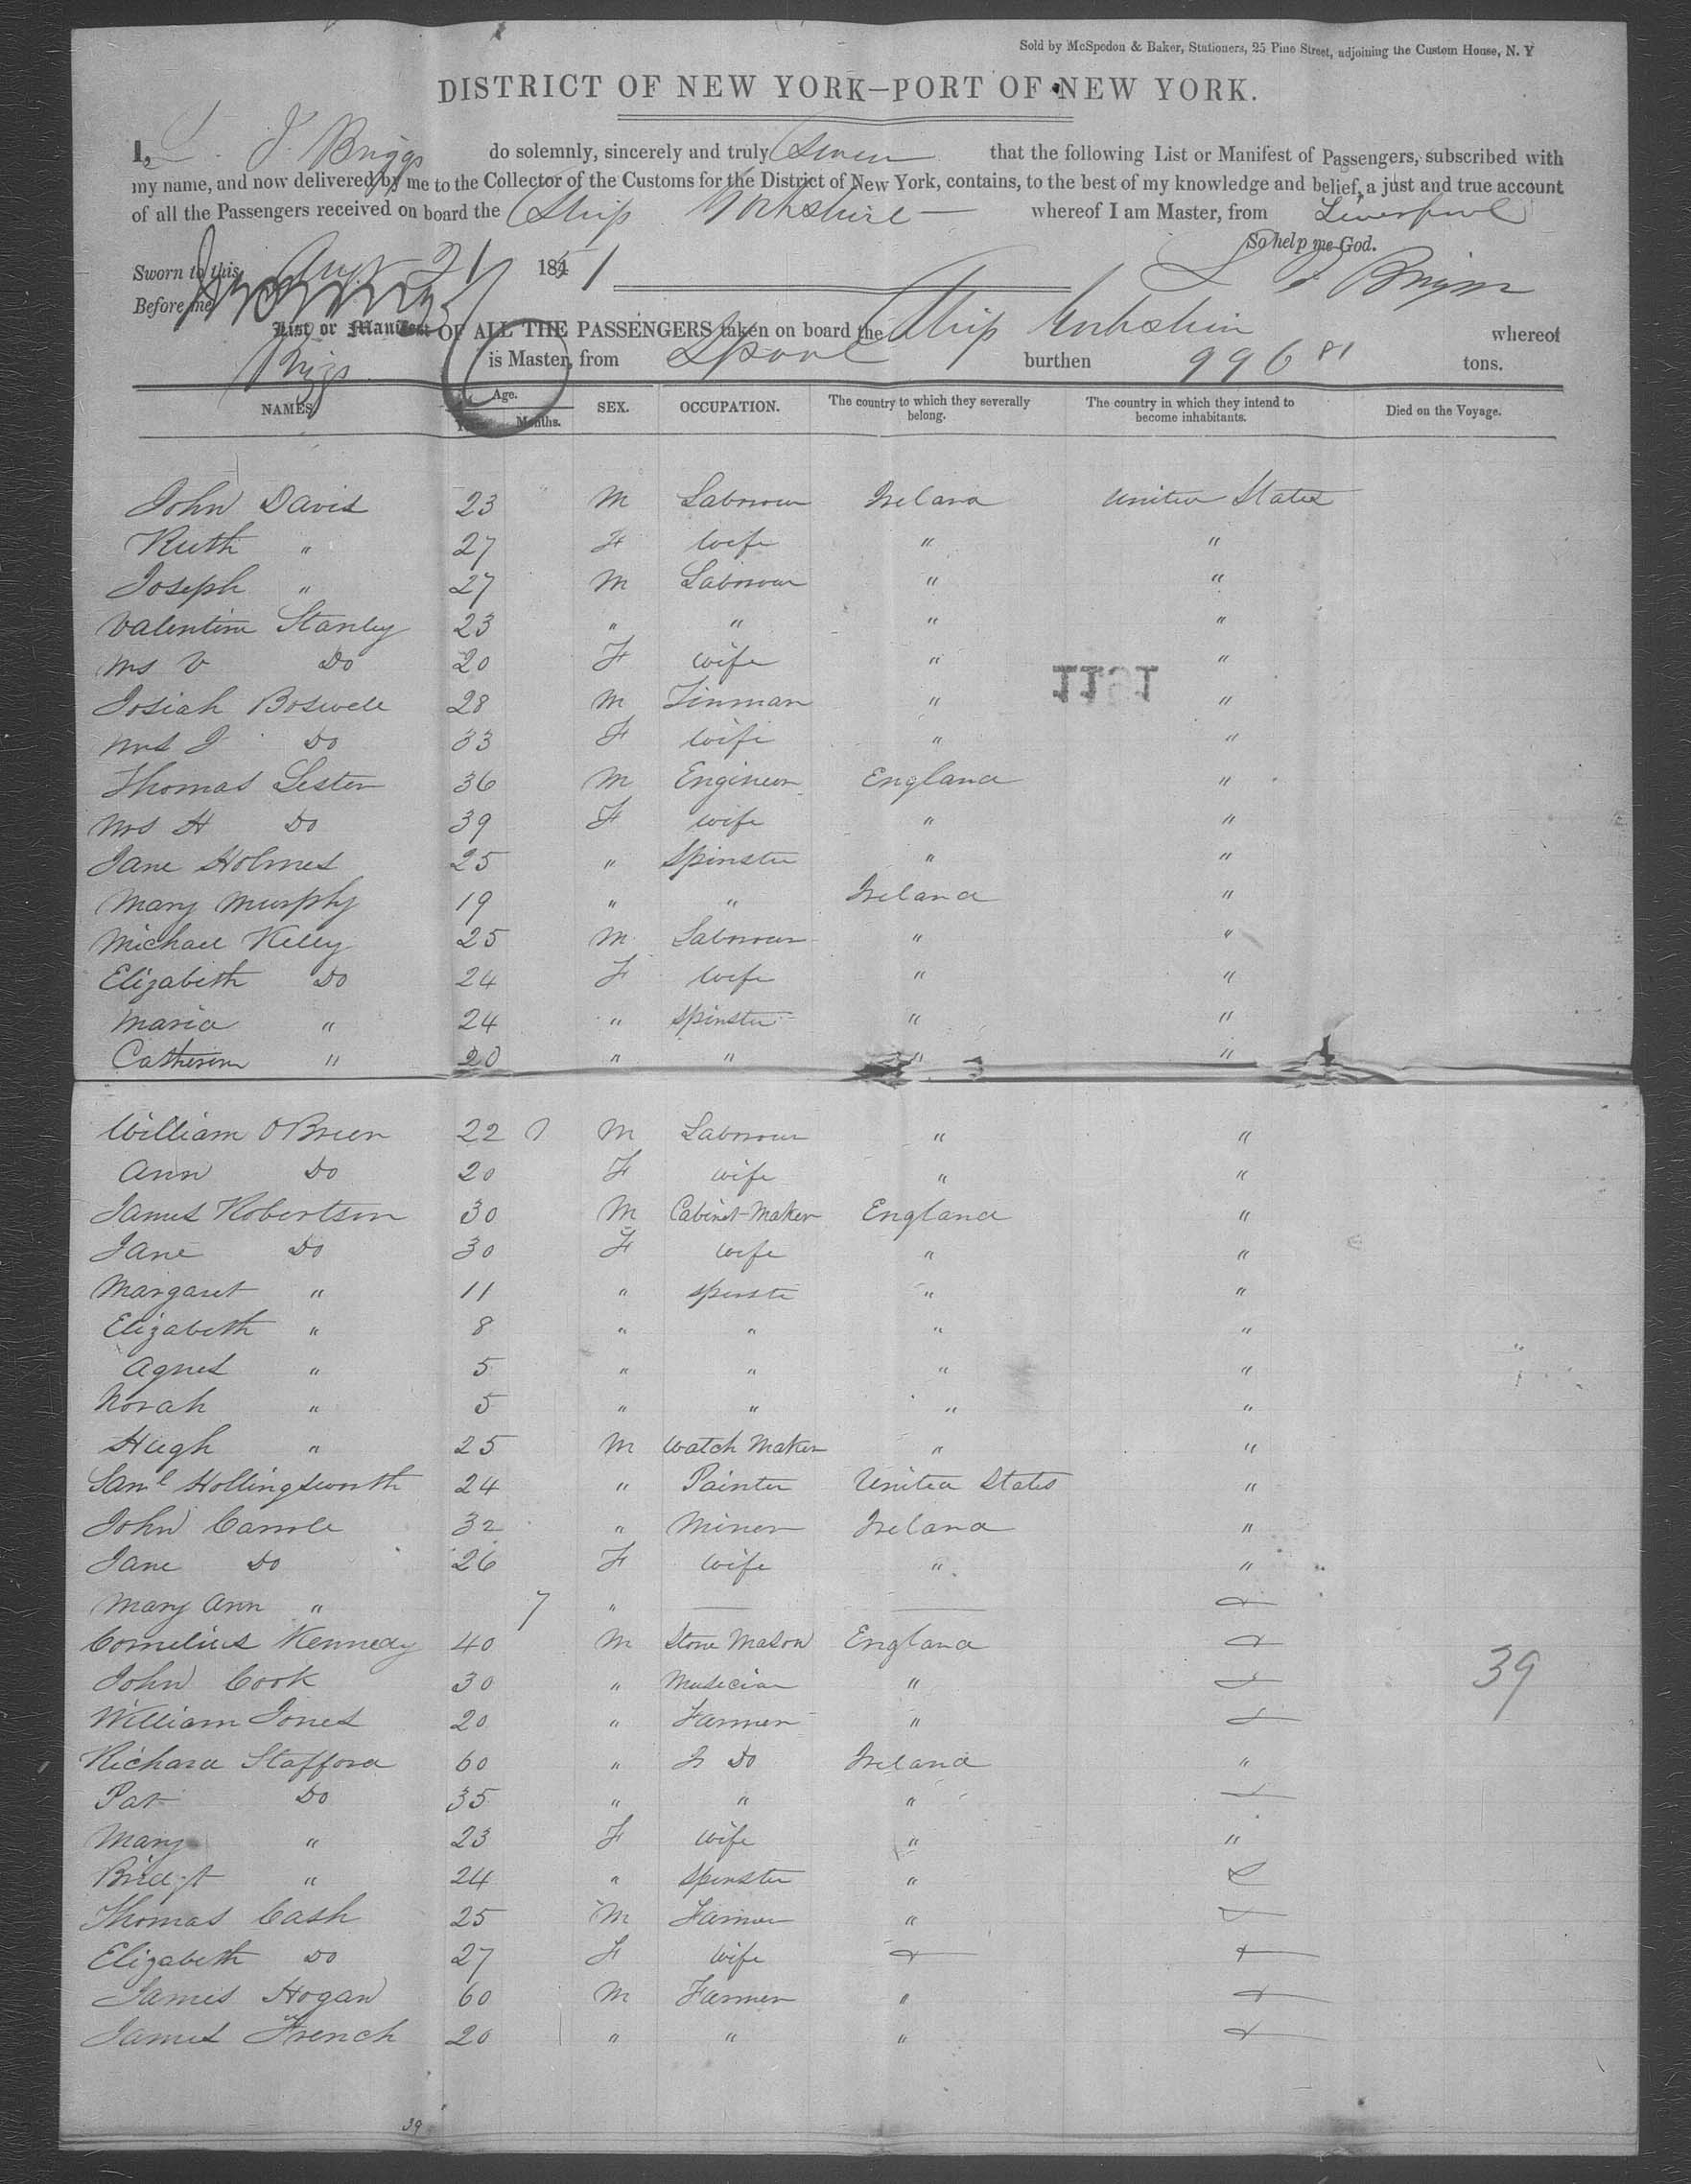 Sold by McSpedon & Baker, Stationers, 25 Pine Street, adjoining the Custom House, N. Y
DISTRICT OF NEW YORK—PORT OF NEW YORK.
I, J Briggs do solemnly, sincerely and truly Swear that the following List or Manifest of Passengers, subscribed with
my name, and now delivered by me to the Collector of the Customs for the District of New York, contains, to the best of my knowledge and belief, a just and true account
of all the Passengers received on board the Ship Yorkshire whereof I am Master, from Liverpool
So help me God.
Sworn to this Augt 21 1851
Briggs
Before me
List or Manifest OF ALL THE PASSENGERS taken on board the Ship Yorkshire whereof
Briggs is Master, from Lpool burthen 996 81 tons.
NAMES. Age. Years. Months. SEX. OCCUPATION. The country to which they severally belong. The country in which they intend to become inhabitants. Died on the Voyage.
John Davis 23 M Labourer Ireland United States
Ruth " 27 F wife " "
Joseph " 27 M Labourer " "
Valentine Stanley 23 " " " "
Mrs V Do 20 F wife " "
1191
Josiah Boswell 28 M Tinman " "
Mrs J Do 33 F wife " "
Thomas Lester 36 M Engineer England "
Mrs H Do 39 F wife " "
Jane Holmes 25 " Spinster " "
Mary Murphy 19 " " Ireland "
Michael Kelly 25 M Labourer " "
Elizabeth Do 24 F wife " "
Maria " 24 " Spinster " "
Catherine " 20 " " " "
William O Brien 22 M Labourer " "
Ann Do 20 F wife " "
James Robertson 30 M Cabinet-Maker England "
Jane Do 30 F wife " "
Margaret " 11 " spinster " "
Elizabeth " 8 " " " "
Agnes " 5 " " " "
Norah " 5 " " " "
Hugh " 25 M Watch Maker " "
Saml Hollingsworth 24 " Painter United States "
John Carrole 32 " Miner Ireland "
Jane Do 26 F wife " "
Mary Ann " 7 "
Cornelius Kennedy 40 M Stone Mason England
John Cook 30 " Musician " 39
William Jones 20 " Farmer "
Richard Stafford 60 " Do Ireland "
Pat Do 35 " " "
Mary " 23 F wife " "
Bridgt " 24 " Spinster "
Thomas Cash 25 M Farmer "
Elizabeth Do 27 F wife
James Hogan 60 M Farmer "
James French 20 " " "
39